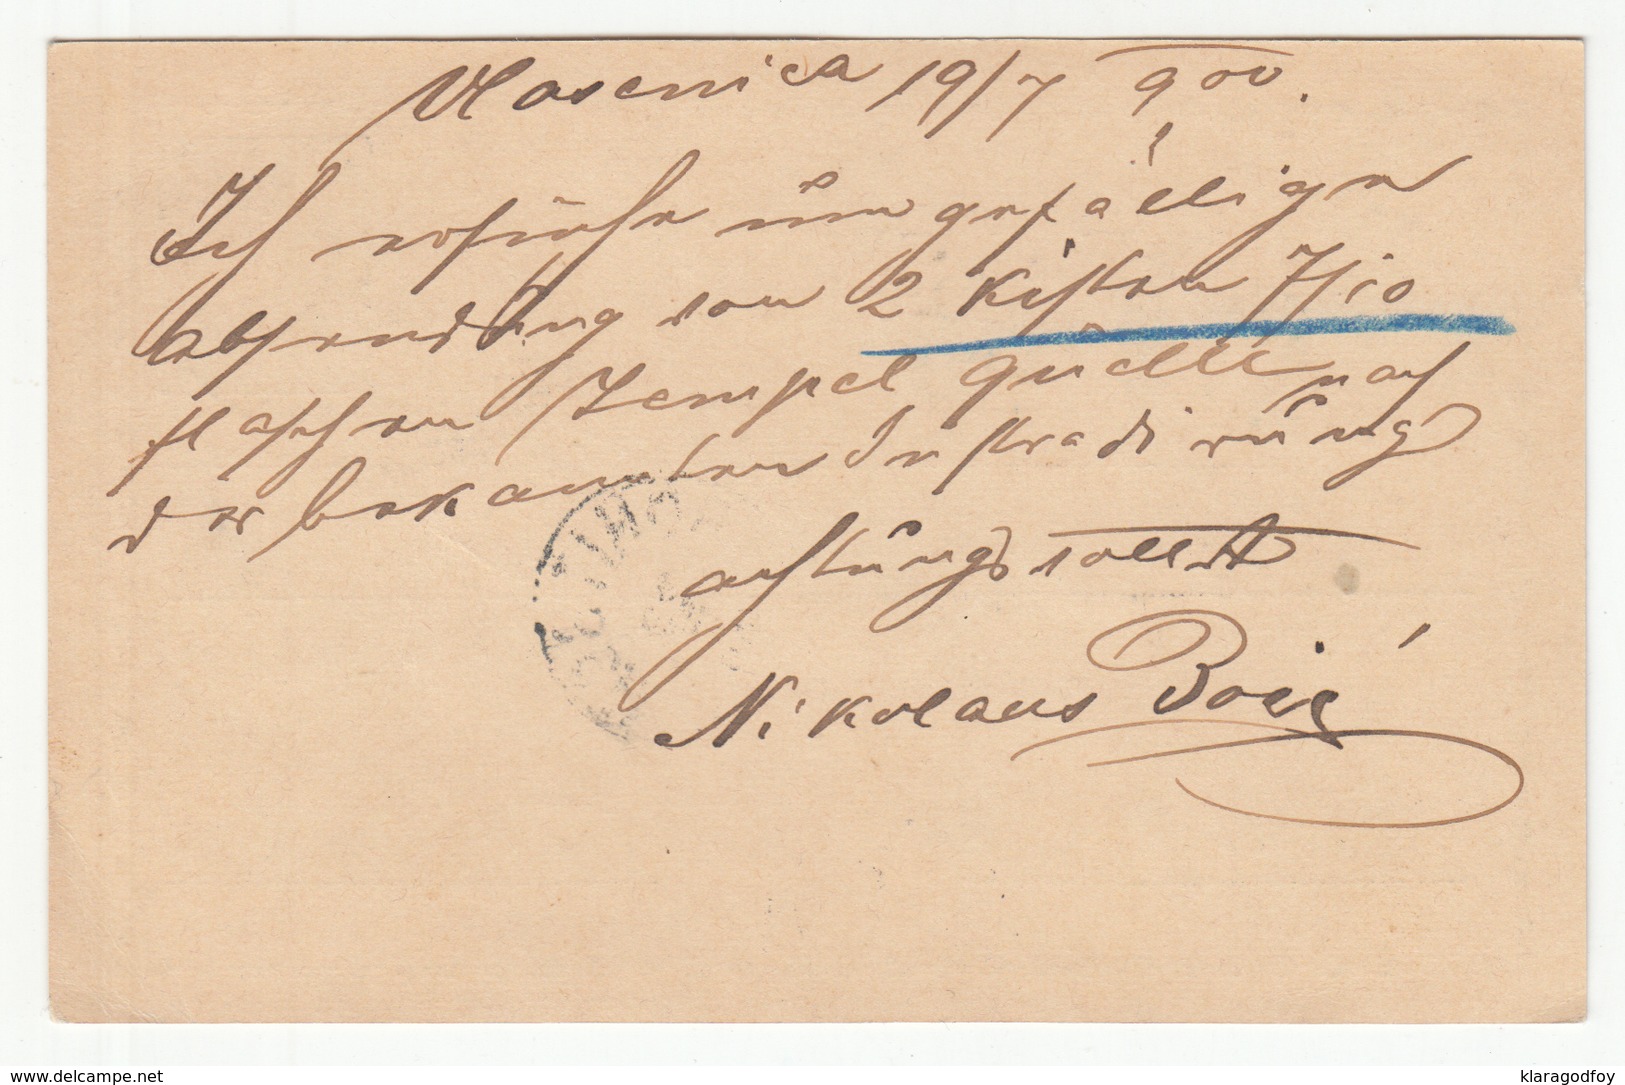 Vlasenica 19/7 900.
Ich ersuche um gefällige
absendung von 2 Kisten 7/10
flaschen Tempel quelle nach
der bekannten Instradirung
achtungsvollst
Nikolaus Boić
www.delcampe.net
klaragodfoy